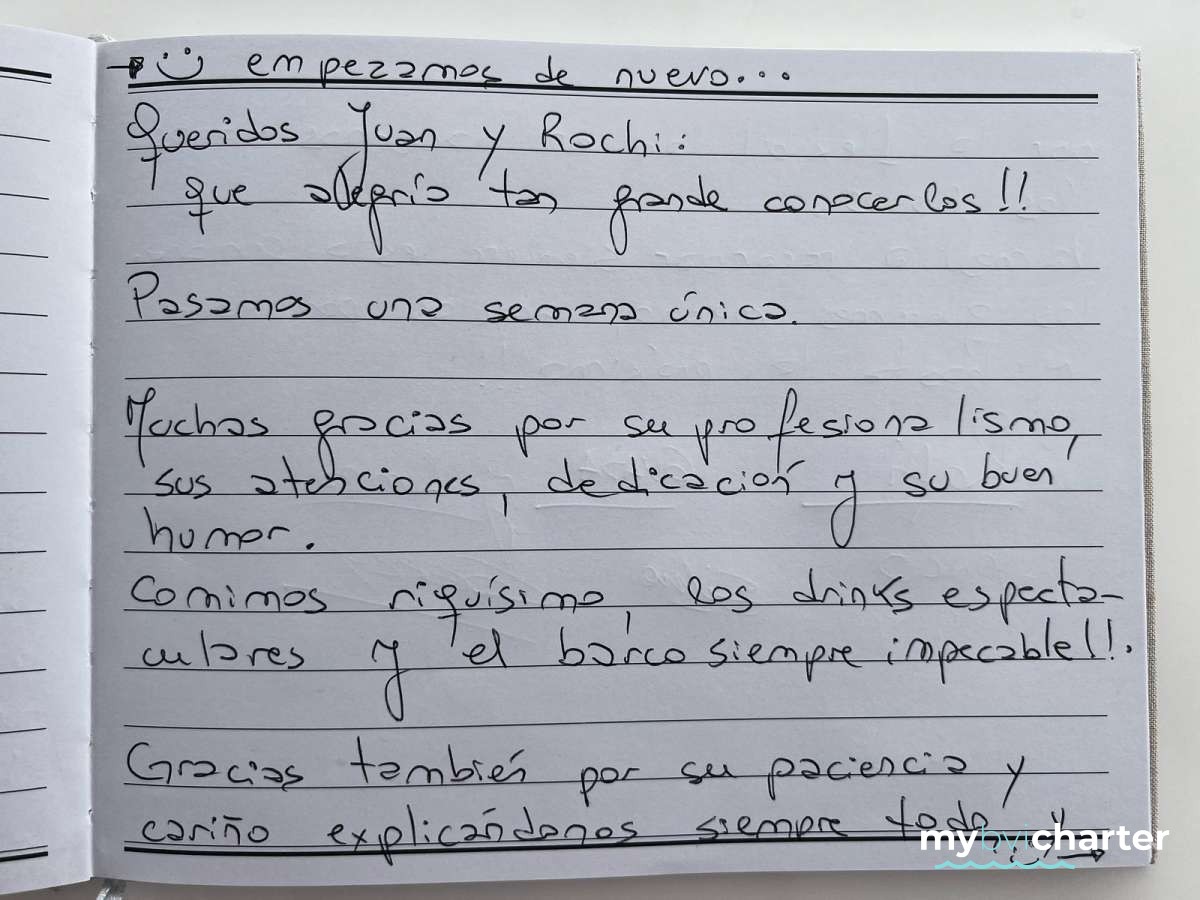 → :) empezamos de nuevo...
Queridos Juan y Rochi:
que alegría tan grande conocerlos!!
Pasamos una semana única.
Muchas gracias por su profesionalismo,
sus atenciones, dedicación y su buen
humor.
Comimos riquísimo, los drinks especta-
culares y el barco siempre impecable!!.
Gracias también por su paciencia y
cariño explicándonos siempre todo y
mybvicharter